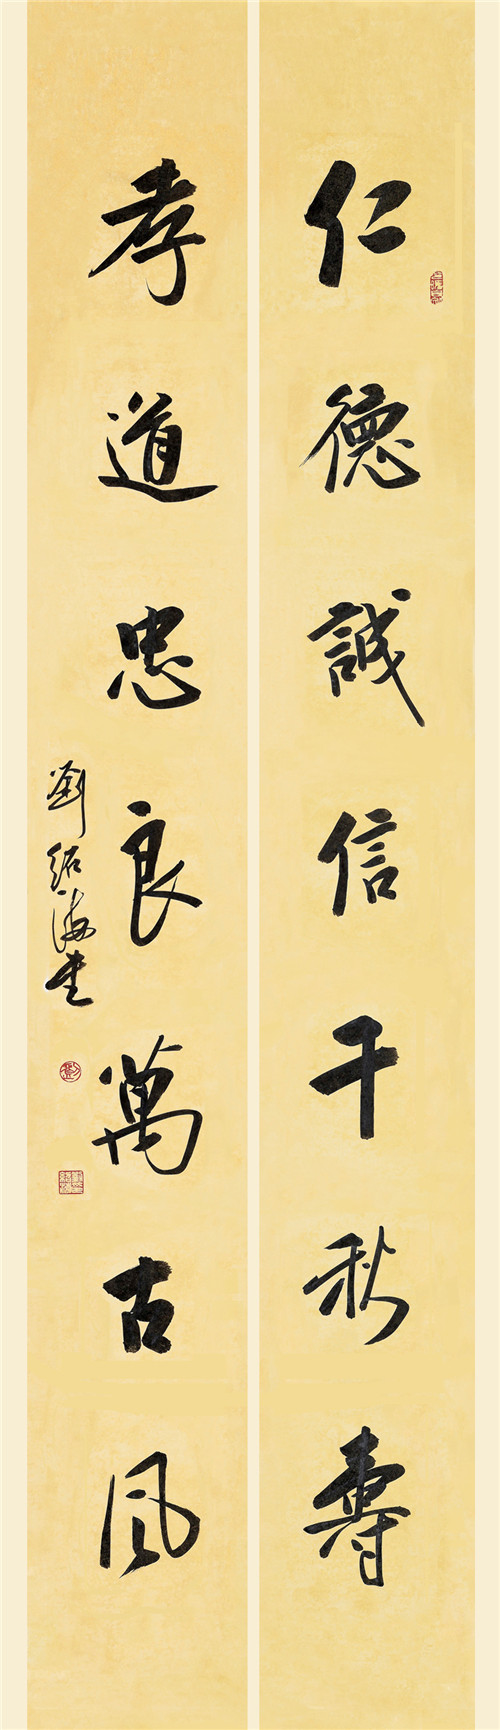 仁德誠信千秋壽
孝道忠良萬古風
劉紹海書